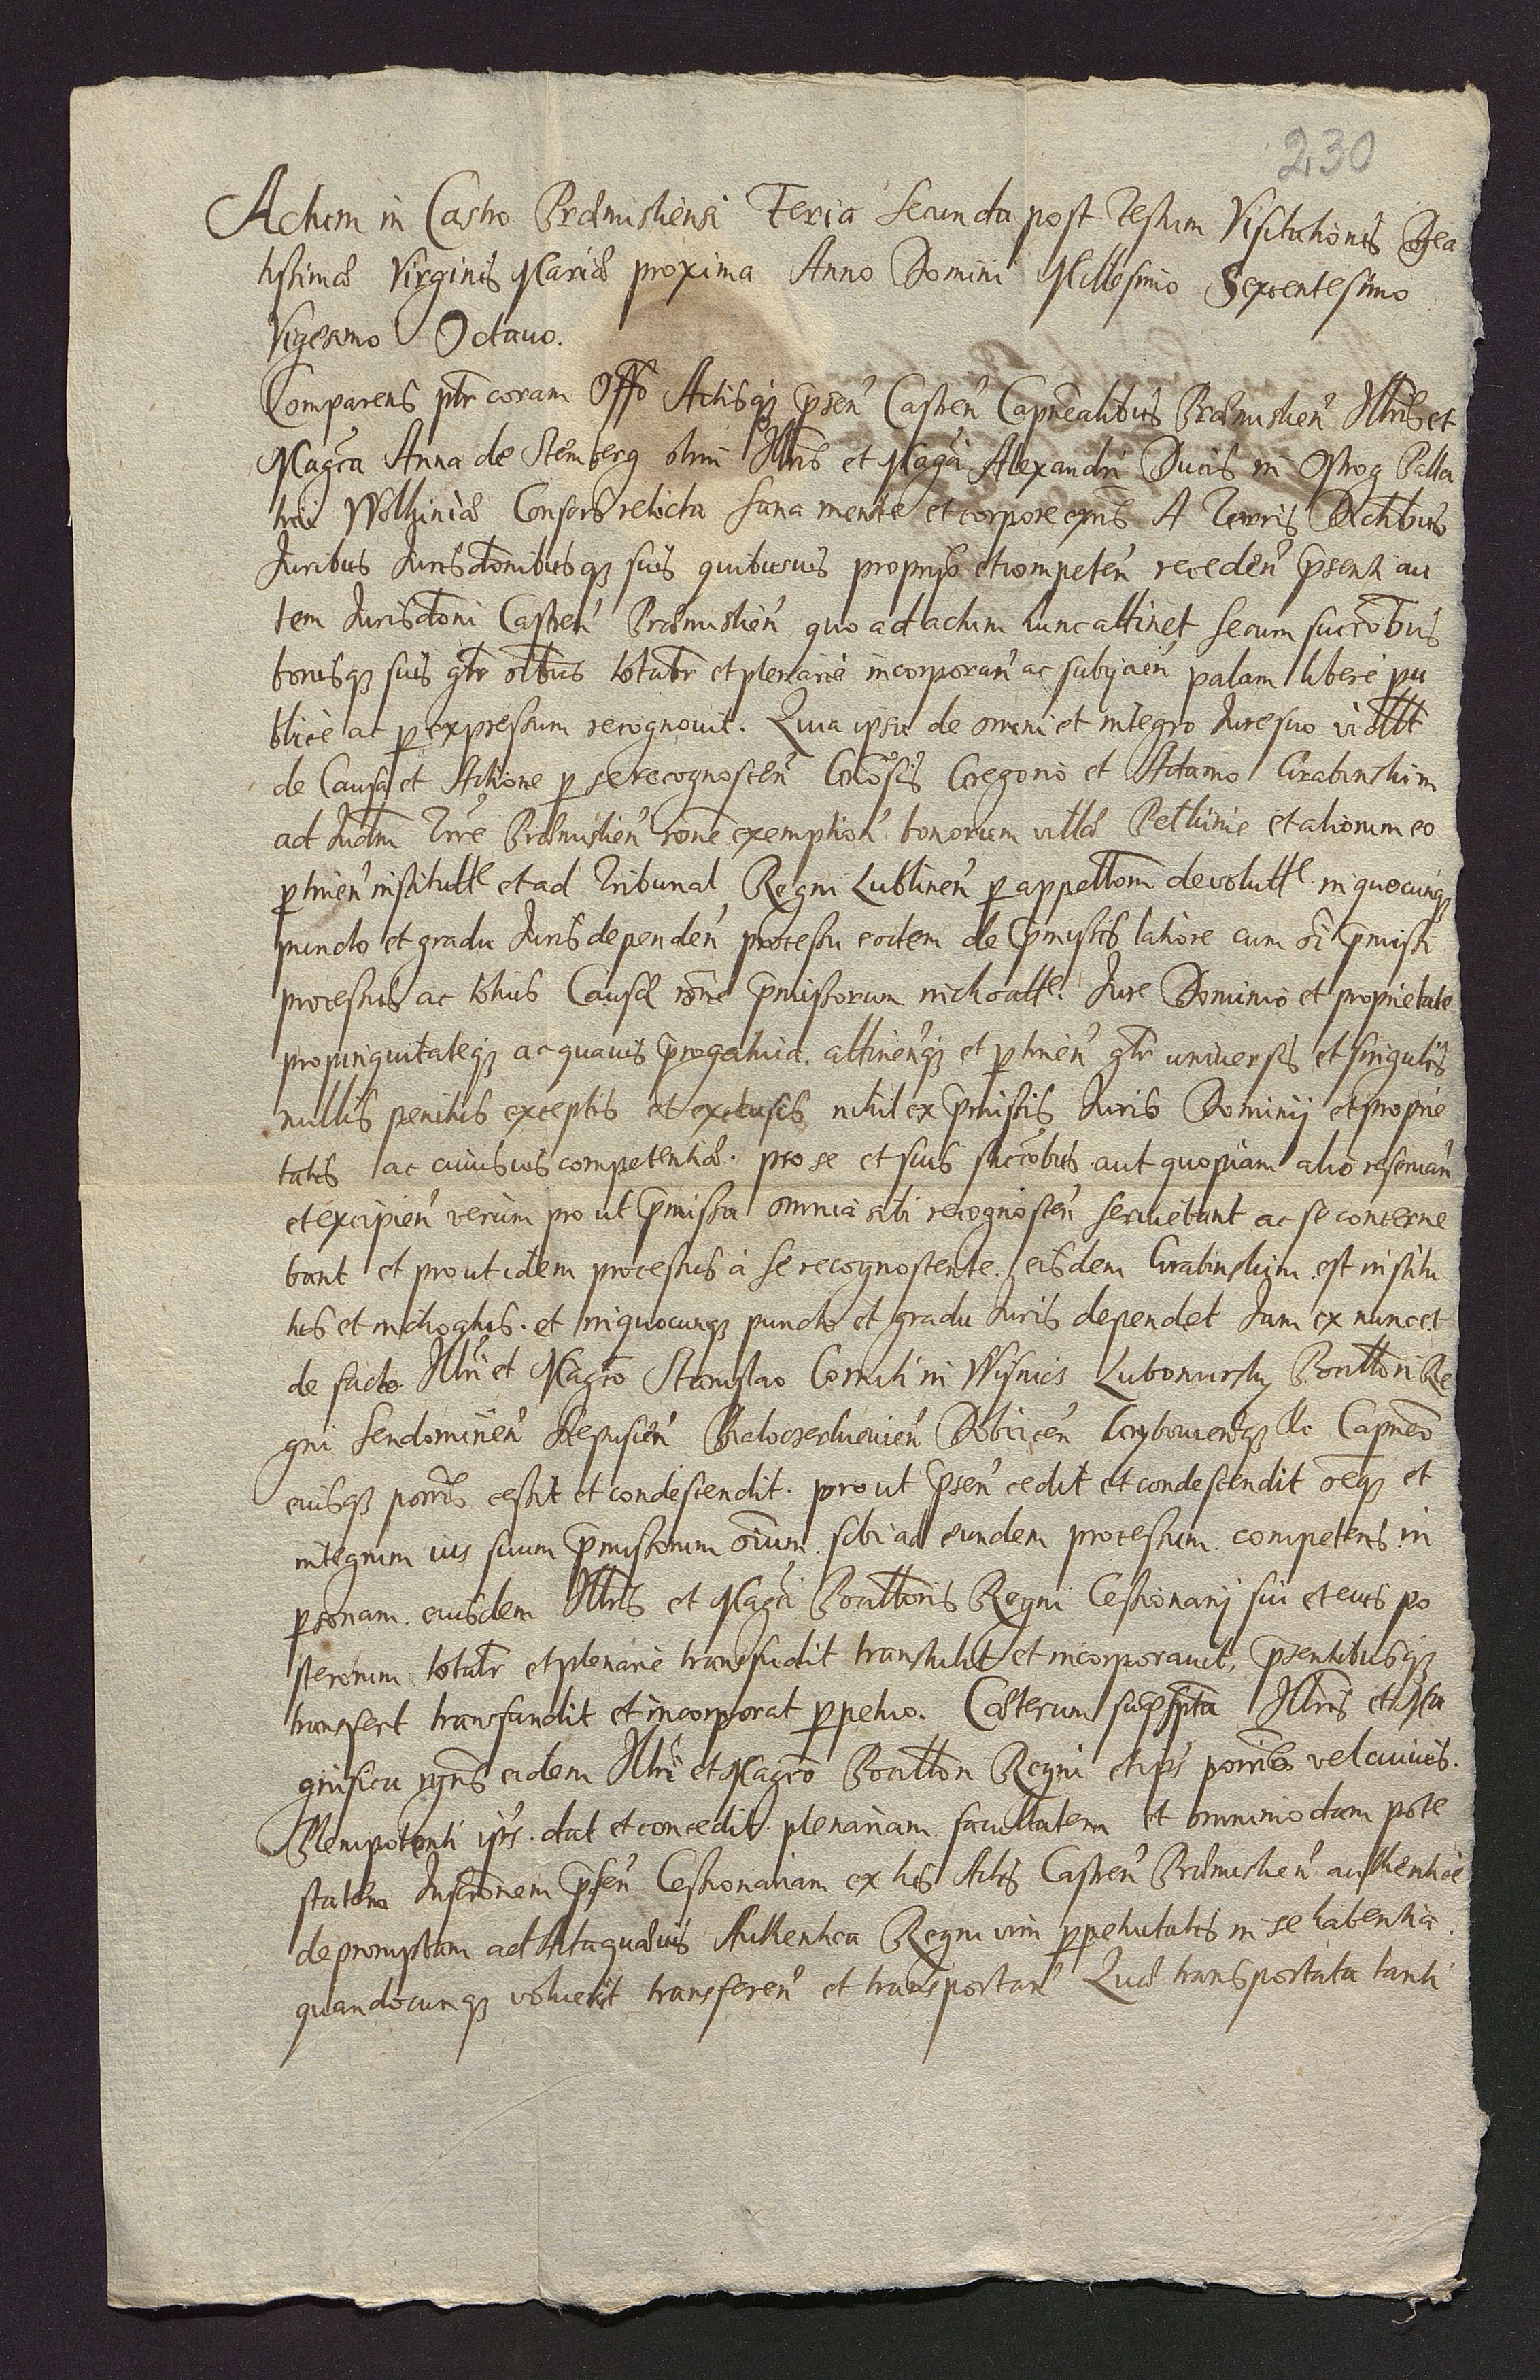 230
Actum in Castro Præmisliensi Feria Secunda post Festum Visitationis Bea
tissimæ Virginis Mariæ proxima Anno Domini Millesimo Sexcentesimo
Vigesimo Octauo.
Comparens pltr coram Offo Actisq3 pñsen Castren Capnealibus Præmislien Illris et
Magca Anna de Stemberg olim Illris et Magci Alexandri Ducis in Ostrog Palla
tini Wolhiniæ Consors relicta sana mente et corpore exñs A Terris Dctibus
Juribus Jurisdtonibusq3 suis quibusuis proprijs et competen receden pñsenti au
tem Jurisdtoni Castren Præmislien quo ad actum hunc attinet secum succõbus
bonisq3 suis gñtr oĩbus totaltr et plenarie incorporan ac subijcien palam libere pu
blice ac per expressum recognouit. Quia ipsa de omni et integro Jure suo videlt
de Causa et Actione per se recognoscen Gñosis Gregorio et Adamo Grabinskim
ad Judm Trre Præmislien rõne exemption bonorum villæ Pethinie et aliorum eo
pertinen institutt et ad Tribunal Regni Lublinen per appellõm deuolutt in quocunq3
puncto et gradu Juris dependen processu eodem de pmissis latiore cum oĩ pmisti
processus ac totius Causæ rõne pmissorum inchoatt. Jure Dominio et proprietate
propinquitateq3 ac quauis prrogatiua. attinenq3 et pertinen gñtr uniuersis et singulis
nullis penitus exceptis et exclusis nihil ex pmissis Juris Dominij et proprie
tatis ac cuiusuis competentiæ. pro se et suis succõbus aut quopiam alio reseruan
et excipien verum pro ut pmissa omnia sibi recognoscen seruiebant ac se concerne
bant et prout idem processus a se recognoscente. eisdem Grabinskim est institu
tus et inchoatus. et in quocunq3 puncto et gradu Juris dependet Jam ex nunc et
de facto Illri et Magco Stanislao Comiti in Wisnicz Lubomirsky Pocillatori Re
gni Sendomirien Scepusien Bialocerkieuien Dobcicen Grybouienq3 &c Capneo
eiusq3 postris cessit et condescendit. pro ut pñsen cedit et condescendit oeq3 et
integrum ius suum pmissorum oĩum sibi ad eundem processum competens in
personam eiusdem Illris et Magci Pocillatoris Regni Cessionarij sui et eius po
sterorum totaltr et plenarie transfudit transtulit et incorporauit, pñsentibusq3
transfert transfundit et incorporat perpetuo. Cæterum supscpta Illris et Ma
gnifica rgñs eidem Illri et Magco Pocillatori Regni et ips postris vel cuiuis.
Plenipotenti ips. dat et concedit plenariam facultatem et omnimodam pote
statem Inscrionem pñsen Cessionariam ex his Actis Castren Præmislien authentice
depromptam ad Acta quæuis Authentica Regni vim perpetuitatis in se habentia.
quandocunq3 voluerit transferen et transportan Quæ transportata tanti